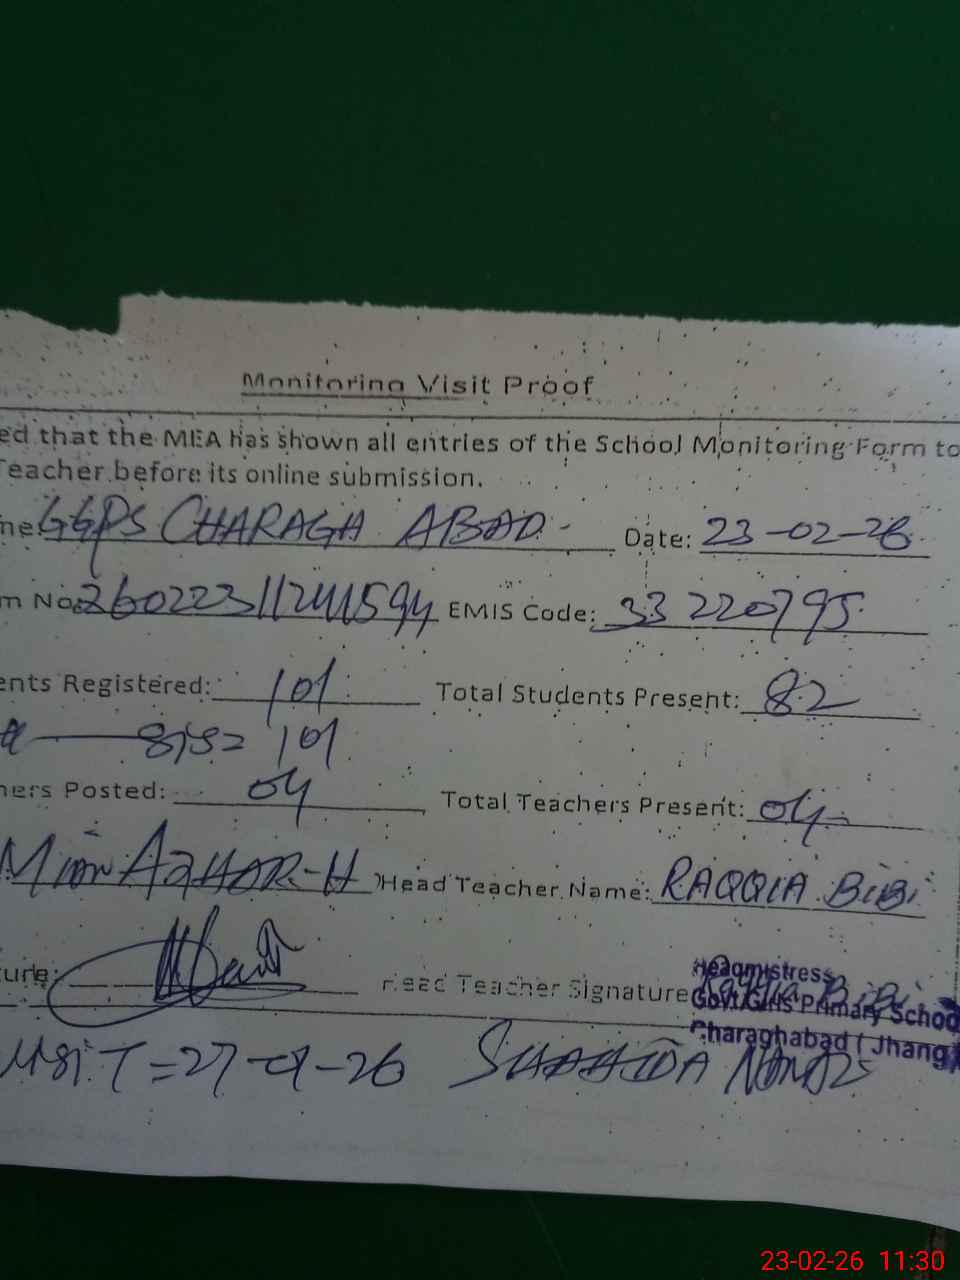 Monitoring Visit Proof
ed that the MEA has shown all entries of the School Monitoring Form to
Teacher before its online submission.
me: GGPS CHARAGH ABAD - Date: 23-02-26
m No: 26022311241594 EMIS Code: 33220795
ents Registered: 101 Total Students Present: 82
101
hers Posted: 04 Total Teachers Present: 04
Mian AZHAR-H Head Teacher Name: RAQQIA BiBi
ture: Head Teacher Signature
Headmistress
Govt. Girls Primary Schoo
Charaghabad ( Jhang
ViSiT = 27-01-26 SHAHIDA
23-02-26 11:30